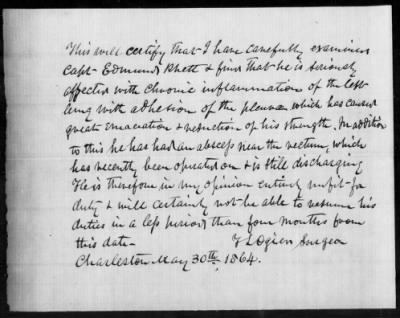 This will certify that I have carefully examined
Capt Edmund Rhett & find that he is seriously
affected with chronic inflammation of the left
lung with adhesion of the pleura which has caused
great emaciation & reduction of his strength. In addition
to this he has had an abscess near the rectum, which
has recently been operated on & is still discharging
He is therefore in my opinion entirely unfit for
duty & will certainly not be able to resume his
duties in a less period than four months from
this date -
Ogier Surgeon
Charleston May 30th, 1864.